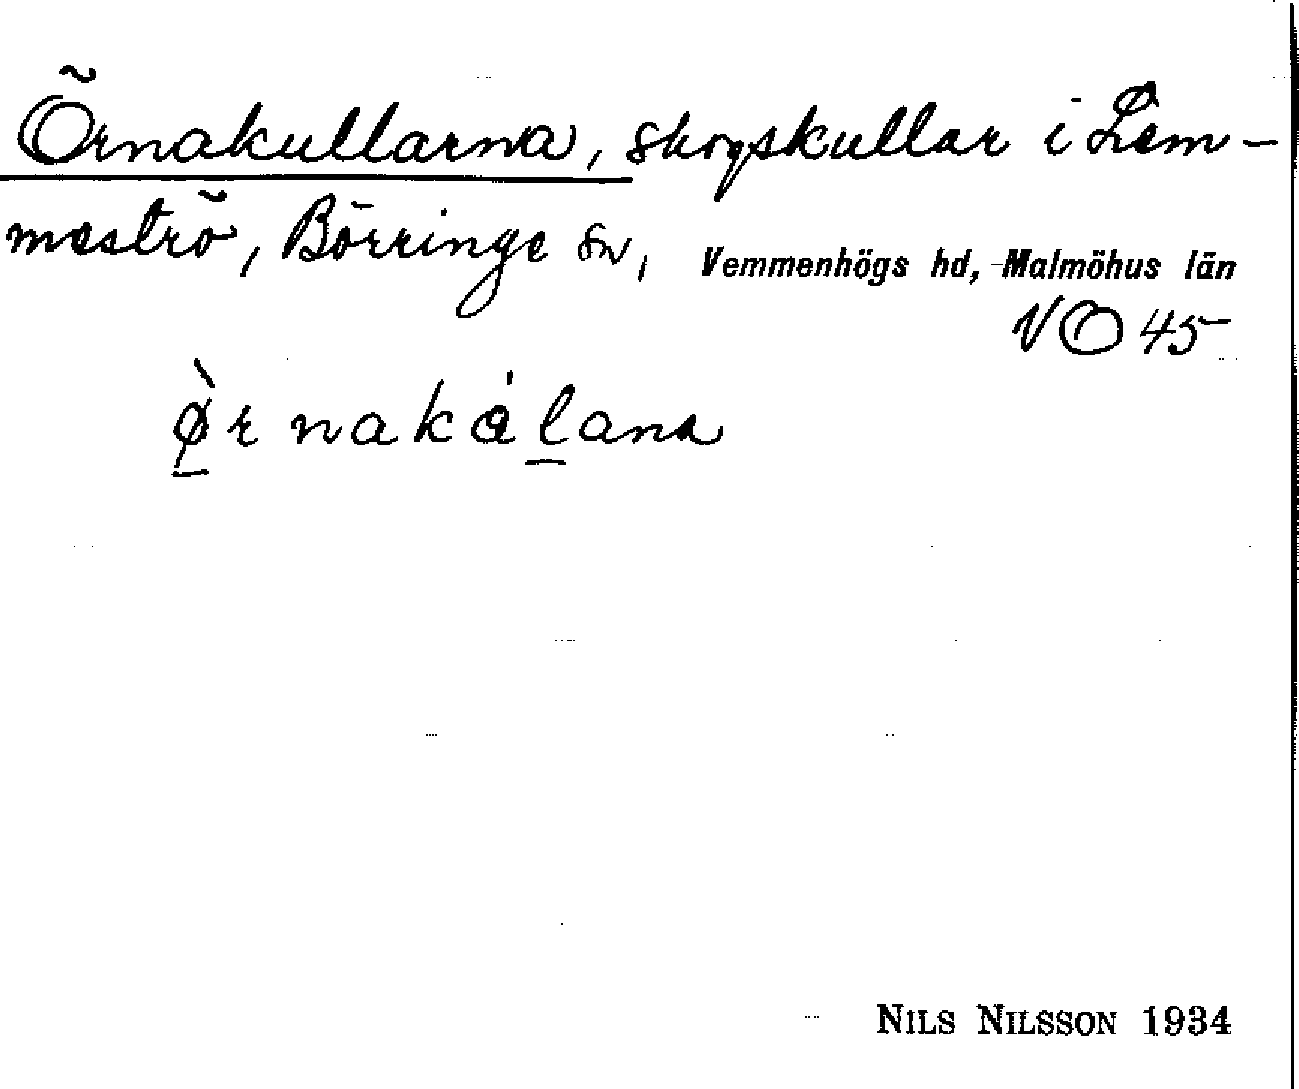 Örnakullarna, skogskullar i Lem-
meströ, Börringe sn, Vemmenhögs hd, Malmöhus län
VO 45
ø̀r nakålana
NILS NILSSON 1934